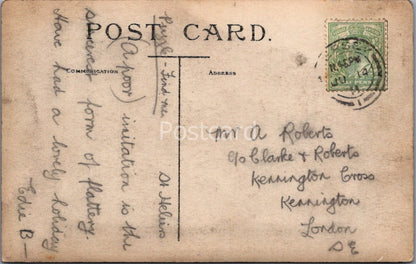 POST CARD.
COMMUNICATION
ADDRESS
Puzzle - Find me St Heliers
(A poor) imitation is the
sincerest form of flattery.
Have had a lovely holiday
Edie B—
Mr A Roberts
c/o Clarke & Roberts
Kennington Cross
Kennington
London
S E
Postcard